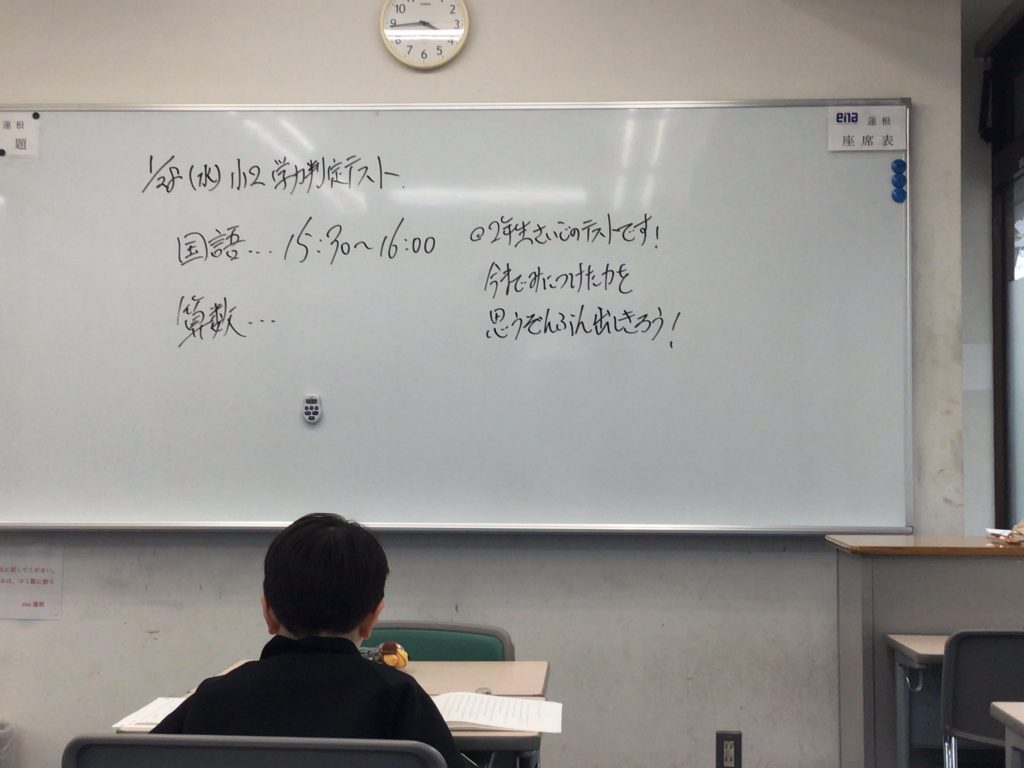 10
2
9
3
8
4
7
6
5
蓮根
題
ena 蓮根
座席表
1/28(水) 小2 学力判定テスト
国語… 15:30〜16:00
算数…
◎2年生さいごのテストです!
今までみにつけた力を
思うぞんぶん出しきろう!
に戻してください。
は、ゴミ箱に捨て
ena 蓮根